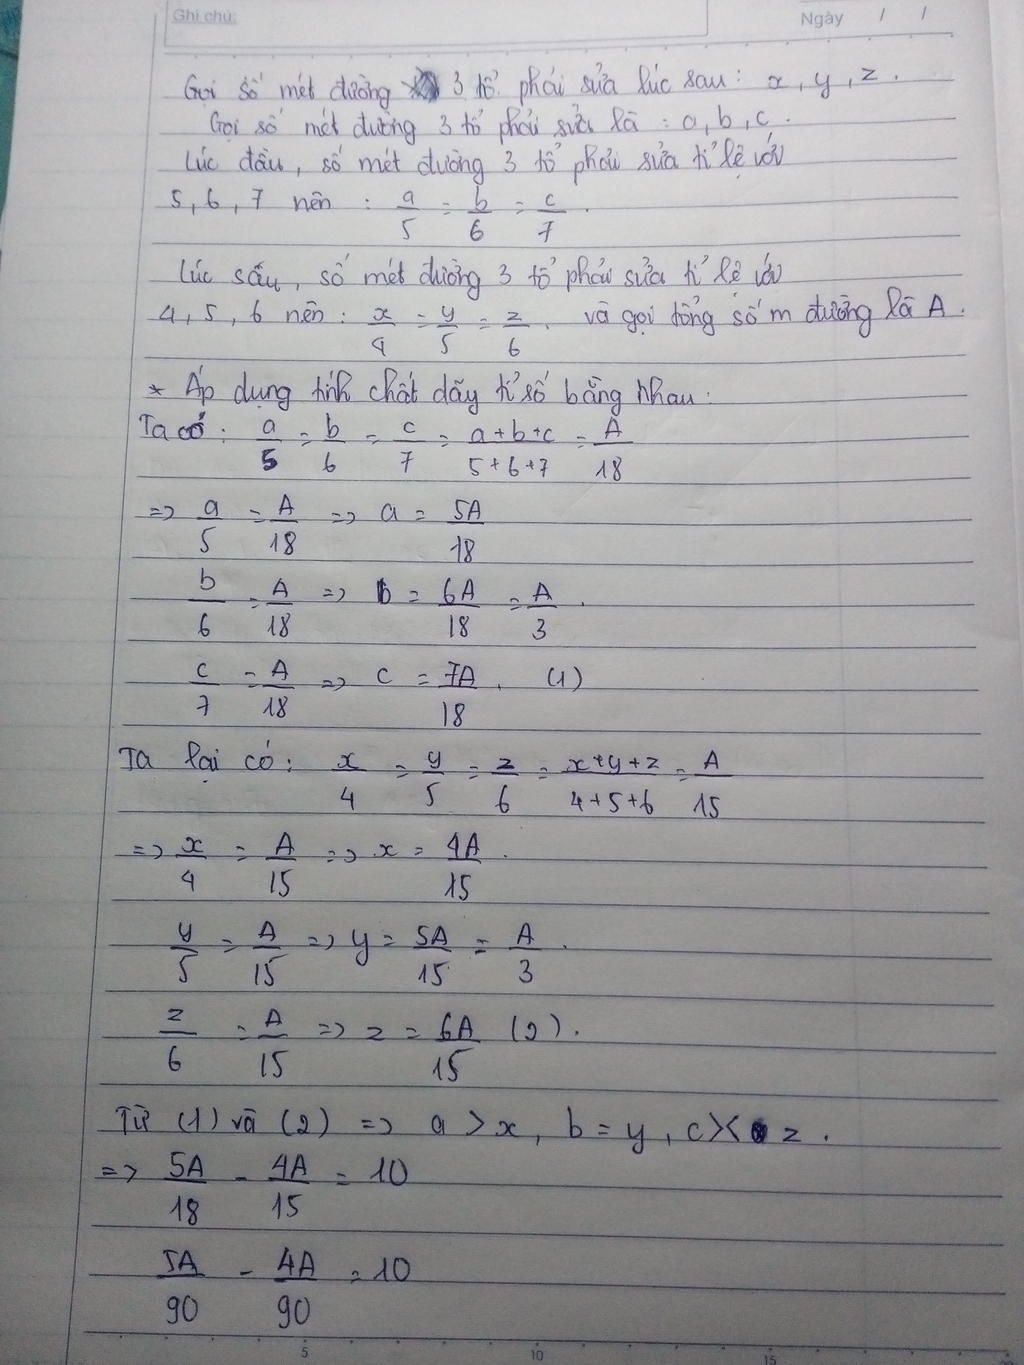 Ghi chú:
Ngày / /
Gọi số mét đường 3 tổ phải sửa lúc sau: x, y, z.
Gọi số mét đường 3 tổ phải sửa là: a, b, c.
Lúc đầu, số mét đường 3 tổ phải sửa tỉ lệ với
5, 6, 7 nên: a/5 = b/6 = c/7.
Lúc sấu, số mét đường 3 tổ phải sửa tỉ lệ với
4, 5, 6 nên: x/4 = y/5 = z/6. và gọi tổng số m đường là A.
* Áp dụng tính chất dãy tỉ số bằng nhau:
Ta có: a/5 = b/6 = c/7 = a+b+c/5+6+7 = A/18
=> a/5 = A/18 => a = 5A/18
b/6 = A/18 => b = 6A/18 = A/3.
c/7 = A/18 => c = 7A/18. (1)
Ta lại có: x/4 = y/5 = z/6 = x+y+z/4+5+6 = A/15
=> x/4 = A/15 => x = 4A/15.
y/5 = A/15 => y = 5A/15 = A/3.
z/6 = A/15 => z = 6A/15 (2).
Từ (1) và (2) => a > x, b = y, c >< z.
=> 5A/18 - 4A/15 = 10
5A/90 - 4A/90 = 10
5 10 15